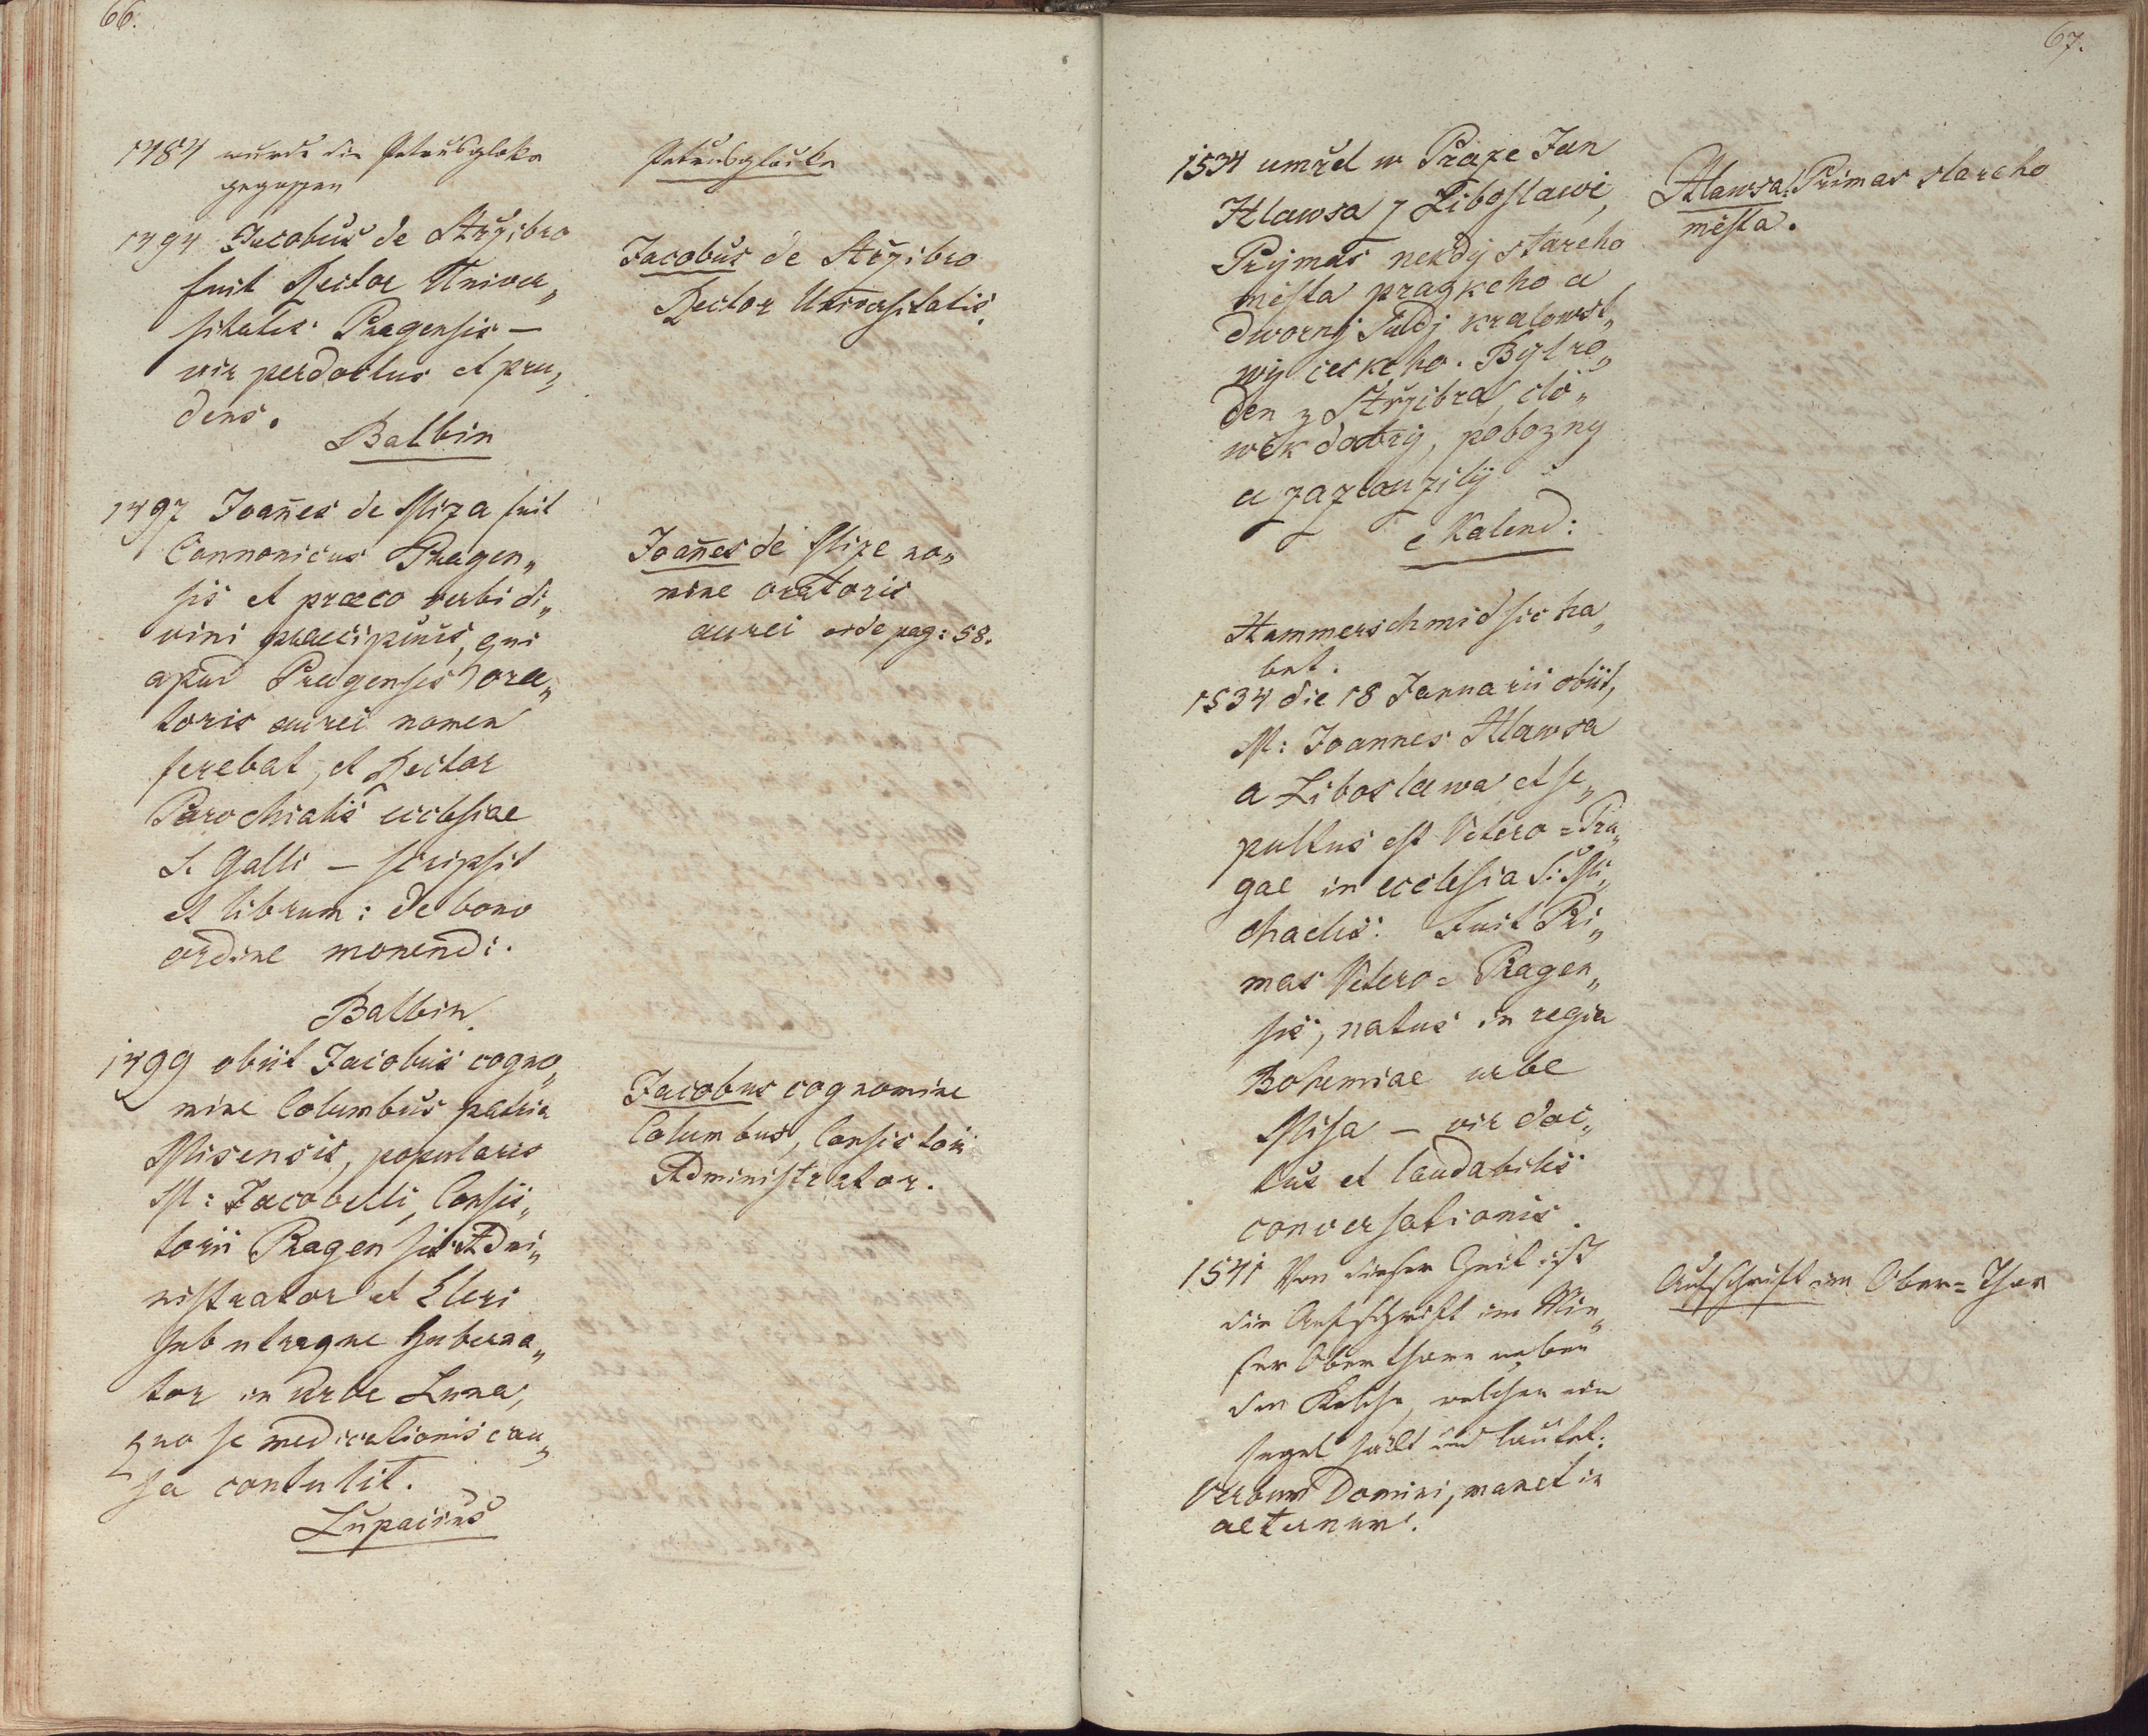 66.
1484 wurde die Petrusgloke
gegossen
1494 Jacobus de Střzibro
fuit Rector Univer„
sitatis Pragensis —
vir perdoctus et pru„
dens.
Balbin
1497 Joan̄es de Miza fuit
Cannonicus Pragen„
sis et præco verbi di„
vini praecipuus, qui
apud Pragenses ora„
toris aurei nomen
ferebat, et Rector
Parochialis ecclesiae
S. Galli — scripsit
et librum: de bono
ordine monendi.
Balbin.
1499 obiit Jacobus cogno„
mine Columbus patria
Misensis, popularis
M: Jacobelli, Consis„
torii Pragensis Admi„
nistrator et Cleri
sub utraque Guberna„
tor in urbe Luna,
quo se medicationis cau„
sa contulit.
Lupacius
Petrusglocke
Jacobus de Střzibro
Rector Universitatis.
Joan̄es de Mize no„
mine oratoris
aurei vide pag: 58.
Jacobus cognomine
Columbus, Consistorii
Administrator.
67.
1534 umřel w Praze Jan
Hlawsa z Liboslawě,
Prymas nekdy stareho
města prazkeho a
dworny Sudj kralowst„
wy českeho. Byl ro„
den z Střzibra, člo„
wěk dobry, pobozny
a zazlauzilÿ
e Kalend:
Hammerschmid sic ha„
bet.
1534 die 18 Januarii obiit,
M: Joannes Hlawsa
a Liboslawa et se„
pultus est Vetero=Pra„
gae in ecclesia S: Mi„
chaelis. Fuit Pri„
mas Vetero=Pragen„
sis, natus in regia
Bohemiae urbe
Misa — vir doc„
tus et laudabilis
conversationis.
1541 Von dieser Zeit ist
die Aufschrift im Mie„
ser Ober thore neben
dem Kelche, welchen ein
Engel hällt und lautet:
Verbum Domini, manet in
aeternum.
Hlawsa Primas stareho
města.
Aufschrift im Ober=Thor